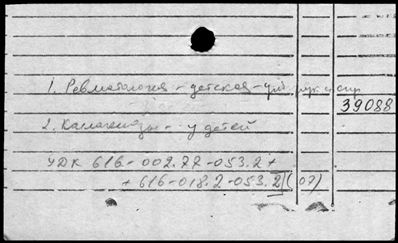 1. Ревматология - детская -
39088
2. Коллагенозы - у детей
УДК 616-002.77-053.2+
+ 616-018.2-053.2](07)